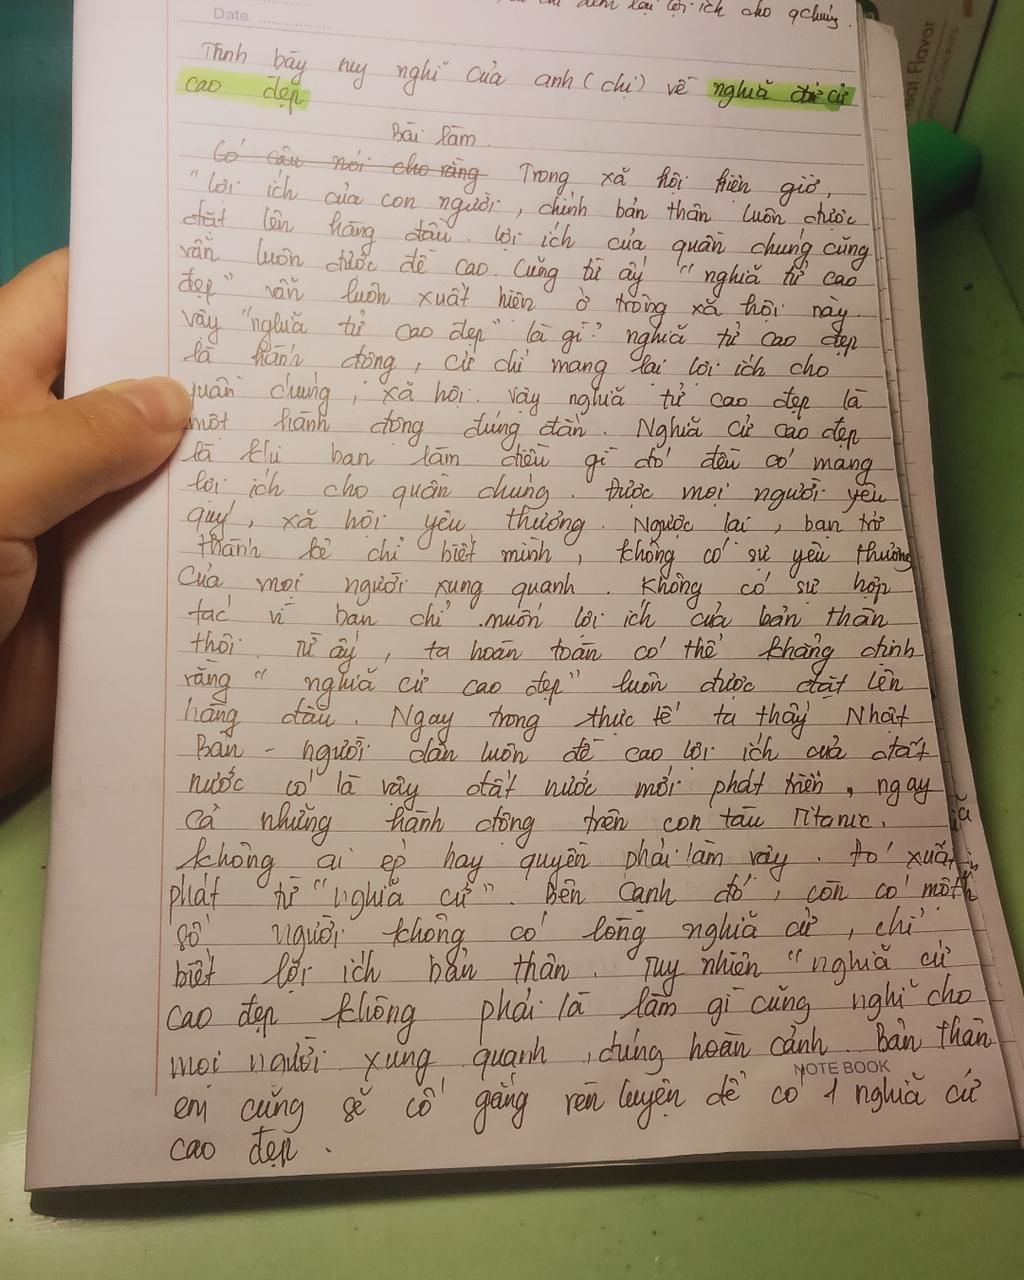 đem lại lợi ích cho qchúng.
Date.
Trình bày suy nghĩ của anh (chị) về nghĩa cử
cao đẹp
Bài làm.
Có câu nói cho rằng Trong xã hội hiện giờ,
"lợi ích của con người, chính bản thân luôn được
đặt lên hàng đầu. lợi ích của quần chúng cũng
vẫn luôn được đề cao. Cũng từ ấy "nghĩa tử cao
đẹp" vẫn luôn xuất hiện ở trong xã hội này.
vậy "nghĩa tử cao đẹp" là gì? nghĩa tử cao đẹp
là hành động, cử chỉ mang lại lợi ích cho
quần chúng, xã hội. vậy nghĩa tử cao đẹp là
một hành động đúng đắn. Nghĩa cử cao đẹp
là khi bạn làm điều gì đó đều có mang
lợi ích cho quần chúng. Được mọi người yêu
quý, xã hội yêu thương. Ngược lại, bạn trở
thành kẻ chỉ biết mình, không có sự yêu thương
của mọi người xung quanh. Không có sự hợp
tác vì bạn chỉ muốn lợi ích của bản thân
thôi. Từ ấy, ta hoàn toàn có thể khẳng định
rằng "nghĩa cử cao đẹp" luôn được đặt lên
hàng đầu. Ngay trong thực tế ta thấy Nhật
Bản - người dân luôn đề cao lợi ích của đất
nước có là vậy đất nước mới phát triển, ngay
cả những hành động trên con tàu Titanic.
không ai ép hay quyền phải làm vậy. Đó xuất
phát từ "nghĩa cử". Bên cạnh đó, còn có một
số người không có lòng nghĩa cử, chỉ
biết lợi ích bản thân. Tuy nhiên "nghĩa cử
cao đẹp không phải là làm gì cũng nghĩ cho
mọi người xung quanh, đúng hoàn cảnh. Bản thân
NOTE BOOK
em cũng sẽ cố gắng rèn luyện để có 1 nghĩa cử
cao đẹp.
Flavor
Crackers